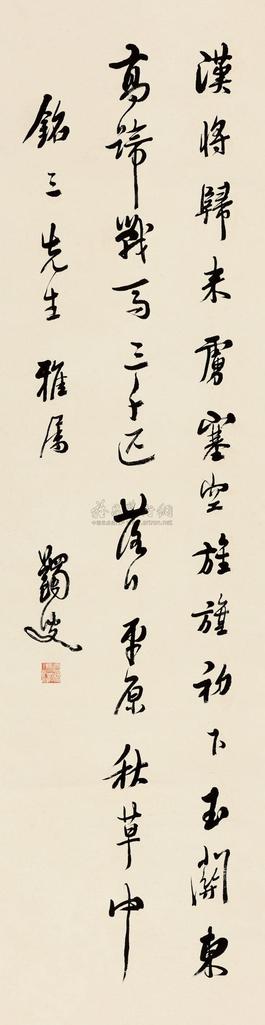 漢將歸來虜塞空旌旗初下玉關東
高蹄戰馬三千匹落日平原秋草中
銘三先生雅屬
蠲叟